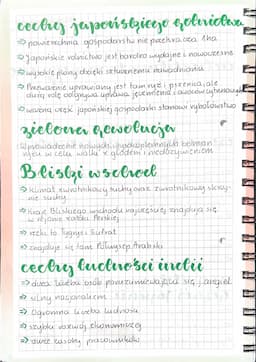 cechy japońskiego rolnictwa
⇒ powierzchnia gospodarstw nie przekracza 1ha
⇒ japońskie rolnictwo jest bardzo wydajne i nowoczesne
⇒ wysokie plony dzięki sztucznemu nawadnianiu
⇒ Przeważnie uprawiany jest tam ryż i pszenica, ale
dużą rolę odgrywa uprawa jęczmienia i owoców cytrusowych
⇒ ważną częśc japońskiej gospodarki stanowi rybołówstwo
zielona rewolucja
Wprowadzenie nowych, wysokoplennych odmian
w celu walki z głodem i niedożywieniem
Bliski wschód
⇒ klimat zwrotnikowy suchy oraz zwrotnikowy skraj-
nie suchy
⇒ kraje Bliskiego wschodu najczęściej znajdują się
w rejonie Zatoki Perskiej
⇒ rzeki to Tygrys i Eufrat
⇒ znajduje się tam Półwysep Arabski
cechy ludności indii
⇒ duża liczba osób porozumiewająca się j. angiel.
⇒ silny nacjonalizm
⇒ Ogromna liczba ludności
⇒ szybki rozwój ekonomiczny
⇒ duże zasoby pracowników